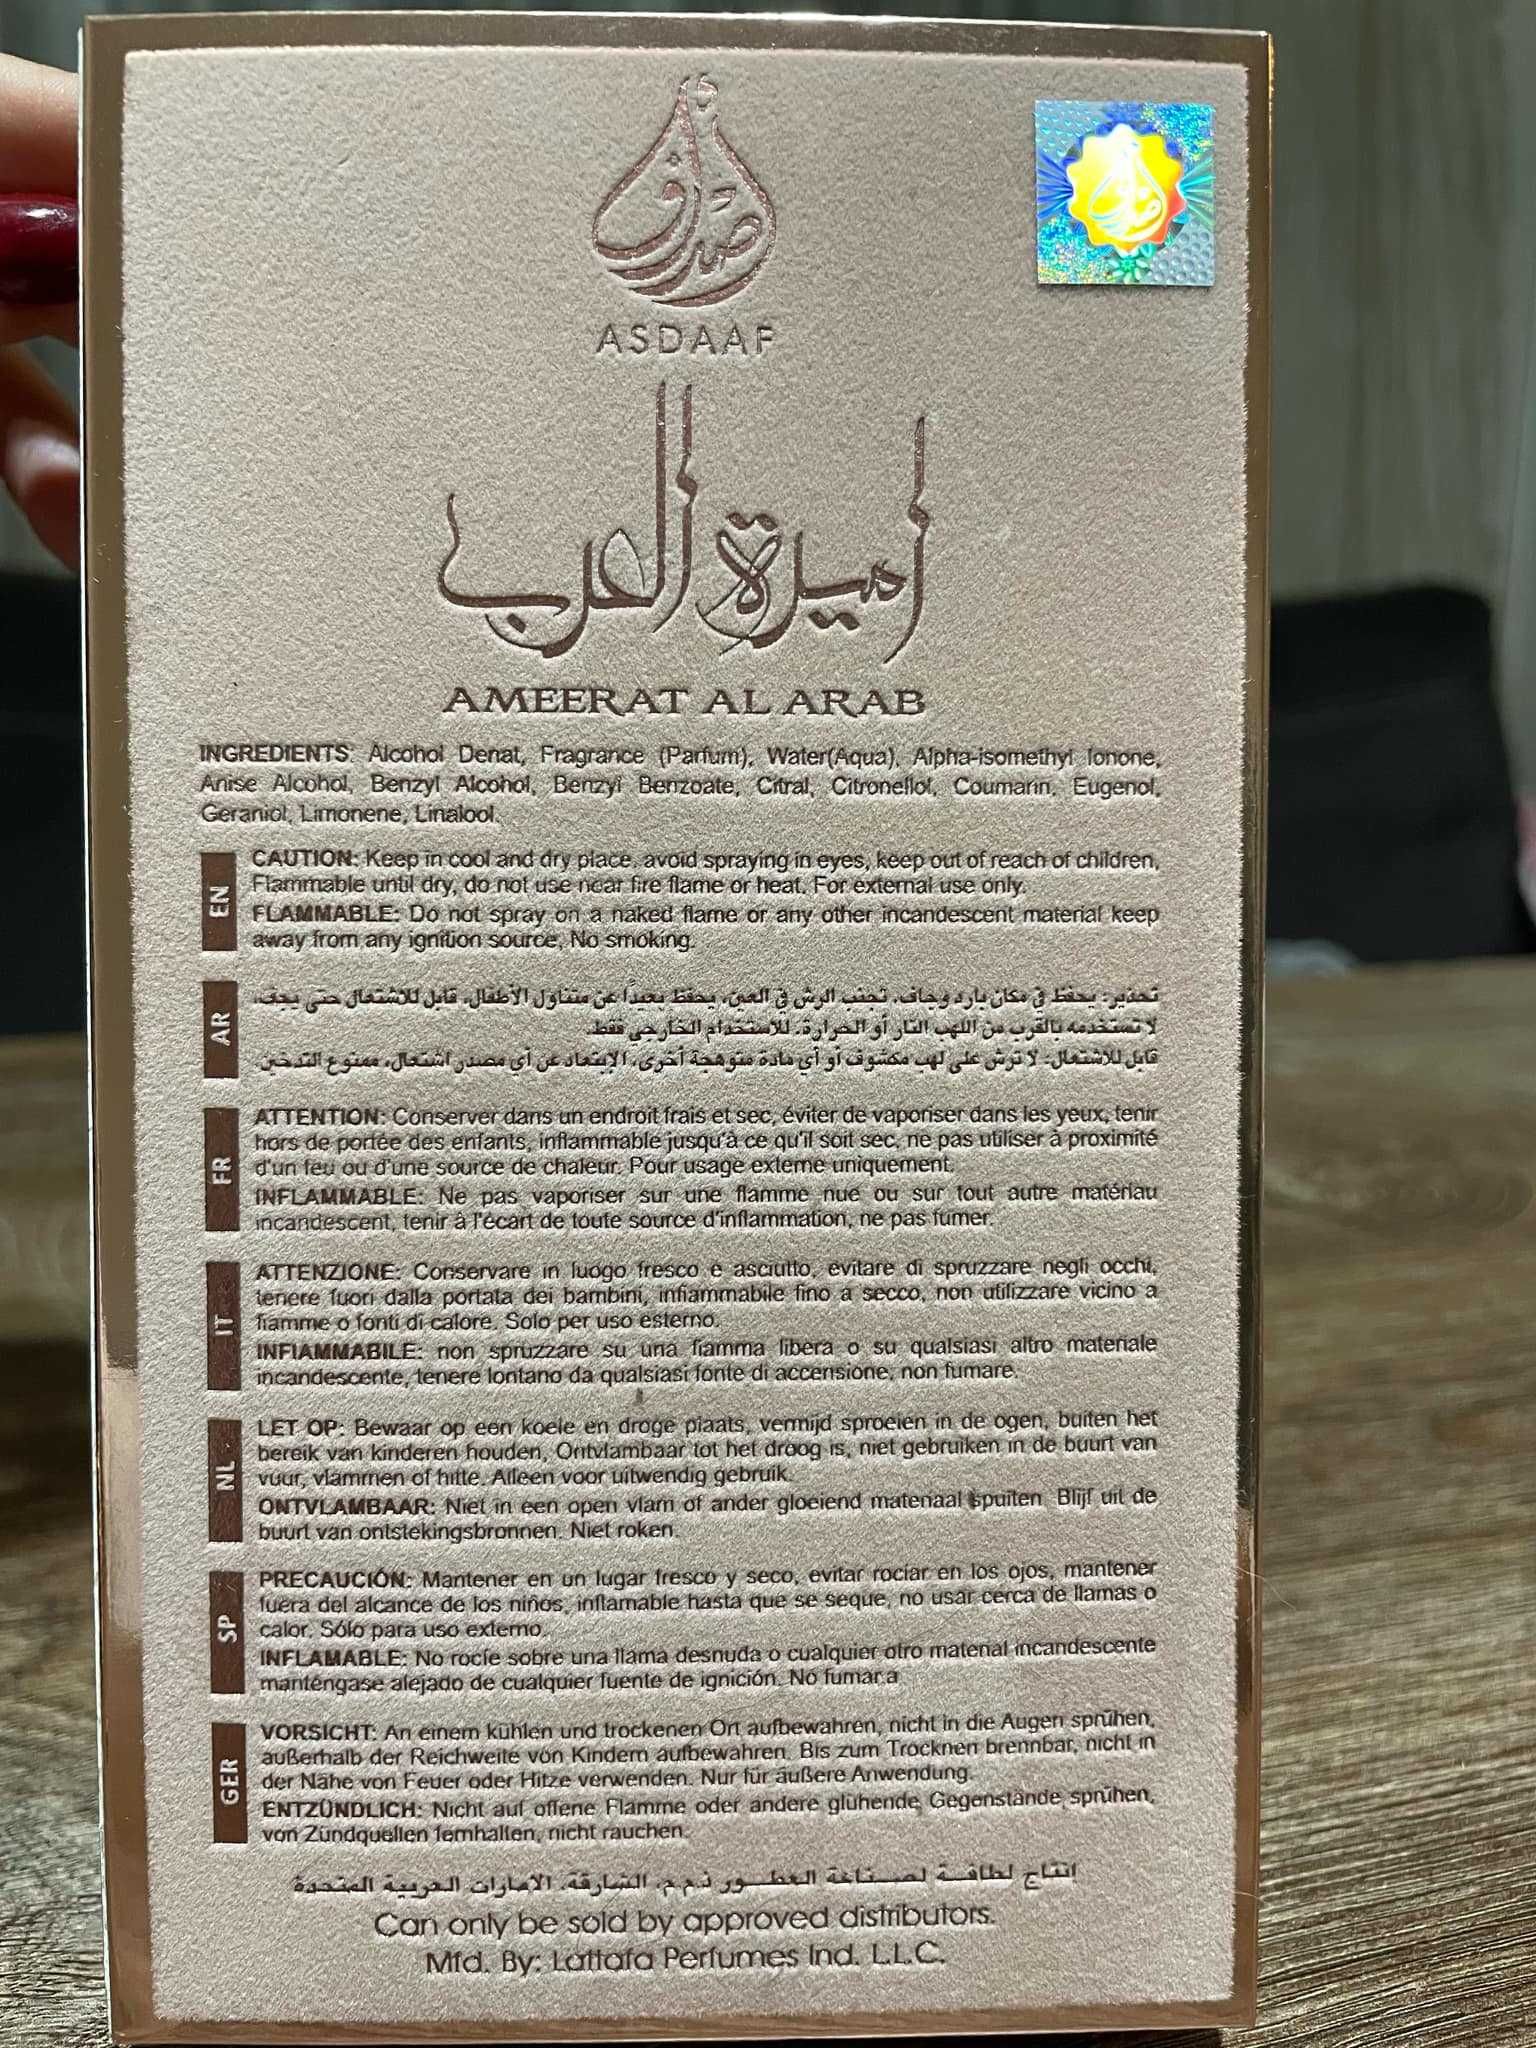 صدف
ASDAAF
أميرة العرب
AMEERAT AL ARAB
INGREDIENTS: Alcohol Denat, Fragrance (Parfum), Water(Aqua), Alpha-isomethyl Ionone,
Anise Alcohol, Benzyl Alcohol, Benzyl Benzoate, Citral, Citronellol, Coumarin, Eugenol,
Geraniol, Limonene, Linalool.
EN
CAUTION: Keep in cool and dry place, avoid spraying in eyes, keep out of reach of children,
Flammable until dry, do not use near fire flame or heat. For external use only.
FLAMMABLE: Do not spray on a naked flame or any other incandescent material keep
away from any ignition source, No smoking.
AR
تحذير: يحفظ في مكان بارد وجاف، تجنب الرش في العين، يحفظ بعيدًا عن متناول الأطفال، قابل للاشتعال حتى يجف،
لا تستخدمه بالقرب من اللهب النار أو الحرارة. للاستخدام الخارجي فقط.
قابل للاشتعال: لا ترش على لهب مكشوف أو أي مادة متوهجة أخرى، الإبتعاد عن أي مصدر اشتعال، ممنوع التدخين
FR
ATTENTION: Conserver dans un endroit frais et sec, éviter de vaporiser dans les yeux, tenir
hors de portée des enfants, inflammable jusqu'à ce qu'il soit sec, ne pas utiliser à proximité
d'un feu ou d'une source de chaleur. Pour usage externe uniquement.
INFLAMMABLE: Ne pas vaporiser sur une flamme nue ou sur tout autre matériau
incandescent, tenir à l'écart de toute source d'inflammation, ne pas fumer.
IT
ATTENZIONE: Conservare in luogo fresco e asciutto, evitare di spruzzare negli occhi,
tenere fuori dalla portata dei bambini, infiammabile fino a secco, non utilizzare vicino a
fiamme o fonti di calore. Solo per uso esterno.
INFIAMMABILE: non spruzzare su una fiamma libera o su qualsiasi altro materiale
incandescente, tenere lontano da qualsiasi fonte di accensione, non fumare.
NL
LET OP: Bewaar op een koele en droge plaats, vermijd sproeien in de ogen, buiten het
bereik van kinderen houden, Ontvlambaar tot het droog is, niet gebruiken in de buurt van
vuur, vlammen of hitte. Alleen voor uitwendig gebruik.
ONTVLAMBAAR: Niet in een open vlam of ander gloeiend materiaal spuiten. Blijf uit de
buurt van ontstekingsbronnen. Niet roken.
SP
PRECAUCIÓN: Mantener en un lugar fresco y seco, evitar rociar en los ojos, mantener
fuera del alcance de los niños, inflamable hasta que se seque, no usar cerca de llamas o
calor. Sólo para uso externo.
INFLAMABLE: No rocíe sobre una llama desnuda o cualquier otro material incandescente
manténgase alejado de cualquier fuente de ignición. No fumar.a
GER
VORSICHT: An einem kühlen und trockenen Ort aufbewahren, nicht in die Augen sprühen,
außerhalb der Reichweite von Kindern aufbewahren. Bis zum Trocknen brennbar, nicht in
der Nähe von Feuer oder Hitze verwenden. Nur für äußere Anwendung.
ENTZÜNDLICH: Nicht auf offene Flamme oder andere glühende Gegenstände sprühen,
von Zündquellen fernhalten, nicht rauchen.
إنتاج لطافة لصناعة العطور ذ.م.م، الشارقة، الامارات العربية المتحدة
Can only be sold by approved distributors.
Mfd. By: Lattafa Perfumes Ind. L.L.C.